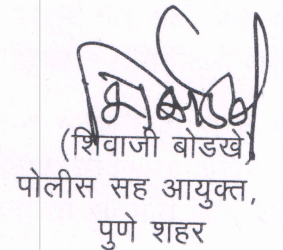 (शिवाजी बोडखे)
पोलीस सह आयुक्त,
पुणे शहर